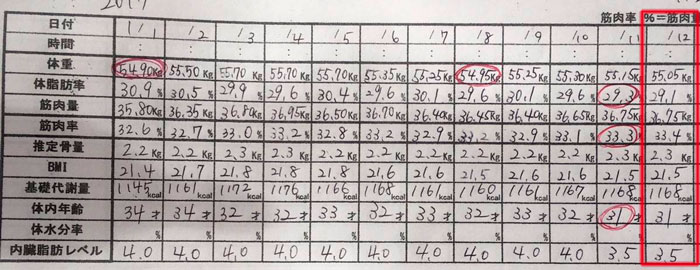 2017
筋肉率 %=筋肉量
日付 1/1 1/2 1/3 1/4 1/5 1/6 1/7 1/8 1/9 1/10 1/11 1/12
時間 : : : : : : : : : : : :
体重 54.90Kg 55.50Kg 55.70Kg 55.70Kg 55.70Kg 55.35Kg 55.25Kg 54.95Kg 55.25Kg 55.30Kg 55.15Kg 55.05Kg
体脂肪率 30.9% 30.5% 29.9% 29.6% 30.4% 29.6% 30.1% 29.6% 30.1% 29.6% 29.3% 29.1%
筋肉量 35.80Kg 36.35Kg 36.80Kg 36.95Kg 36.50Kg 36.70Kg 36.40Kg 36.45Kg 36.40Kg 36.65Kg 36.75Kg 36.75Kg
筋肉率 32.6% 32.7% 33.0% 33.2% 32.8% 33.2% 32.9% 33.2% 32.9% 33.1% 33.3% 33.4%
推定骨量 2.2Kg 2.2Kg 2.3Kg 2.3Kg 2.2Kg 2.2Kg 2.2Kg 2.2Kg 2.2Kg 2.2Kg 2.3Kg 2.3Kg
BMI 21.4 21.7 21.8 21.8 21.8 21.6 21.6 21.5 21.6 21.6 21.5 21.5
基礎代謝量 1145kcal 1161kcal 1172kcal 1176kcal 1166kcal 1168kcal 1161kcal 1160kcal 1161kcal 1167kcal 1168kcal 1168kcal
体内年齢 34才 34才 32才 32才 33才 32才 32才 32才 32才 32才 31才 31才
体水分率 % % % % % % % % % % % %
内臓脂肪レベル 4.0 4.0 4.0 4.0 4.0 4.0 4.0 4.0 4.0 4.0 3.5 3.5